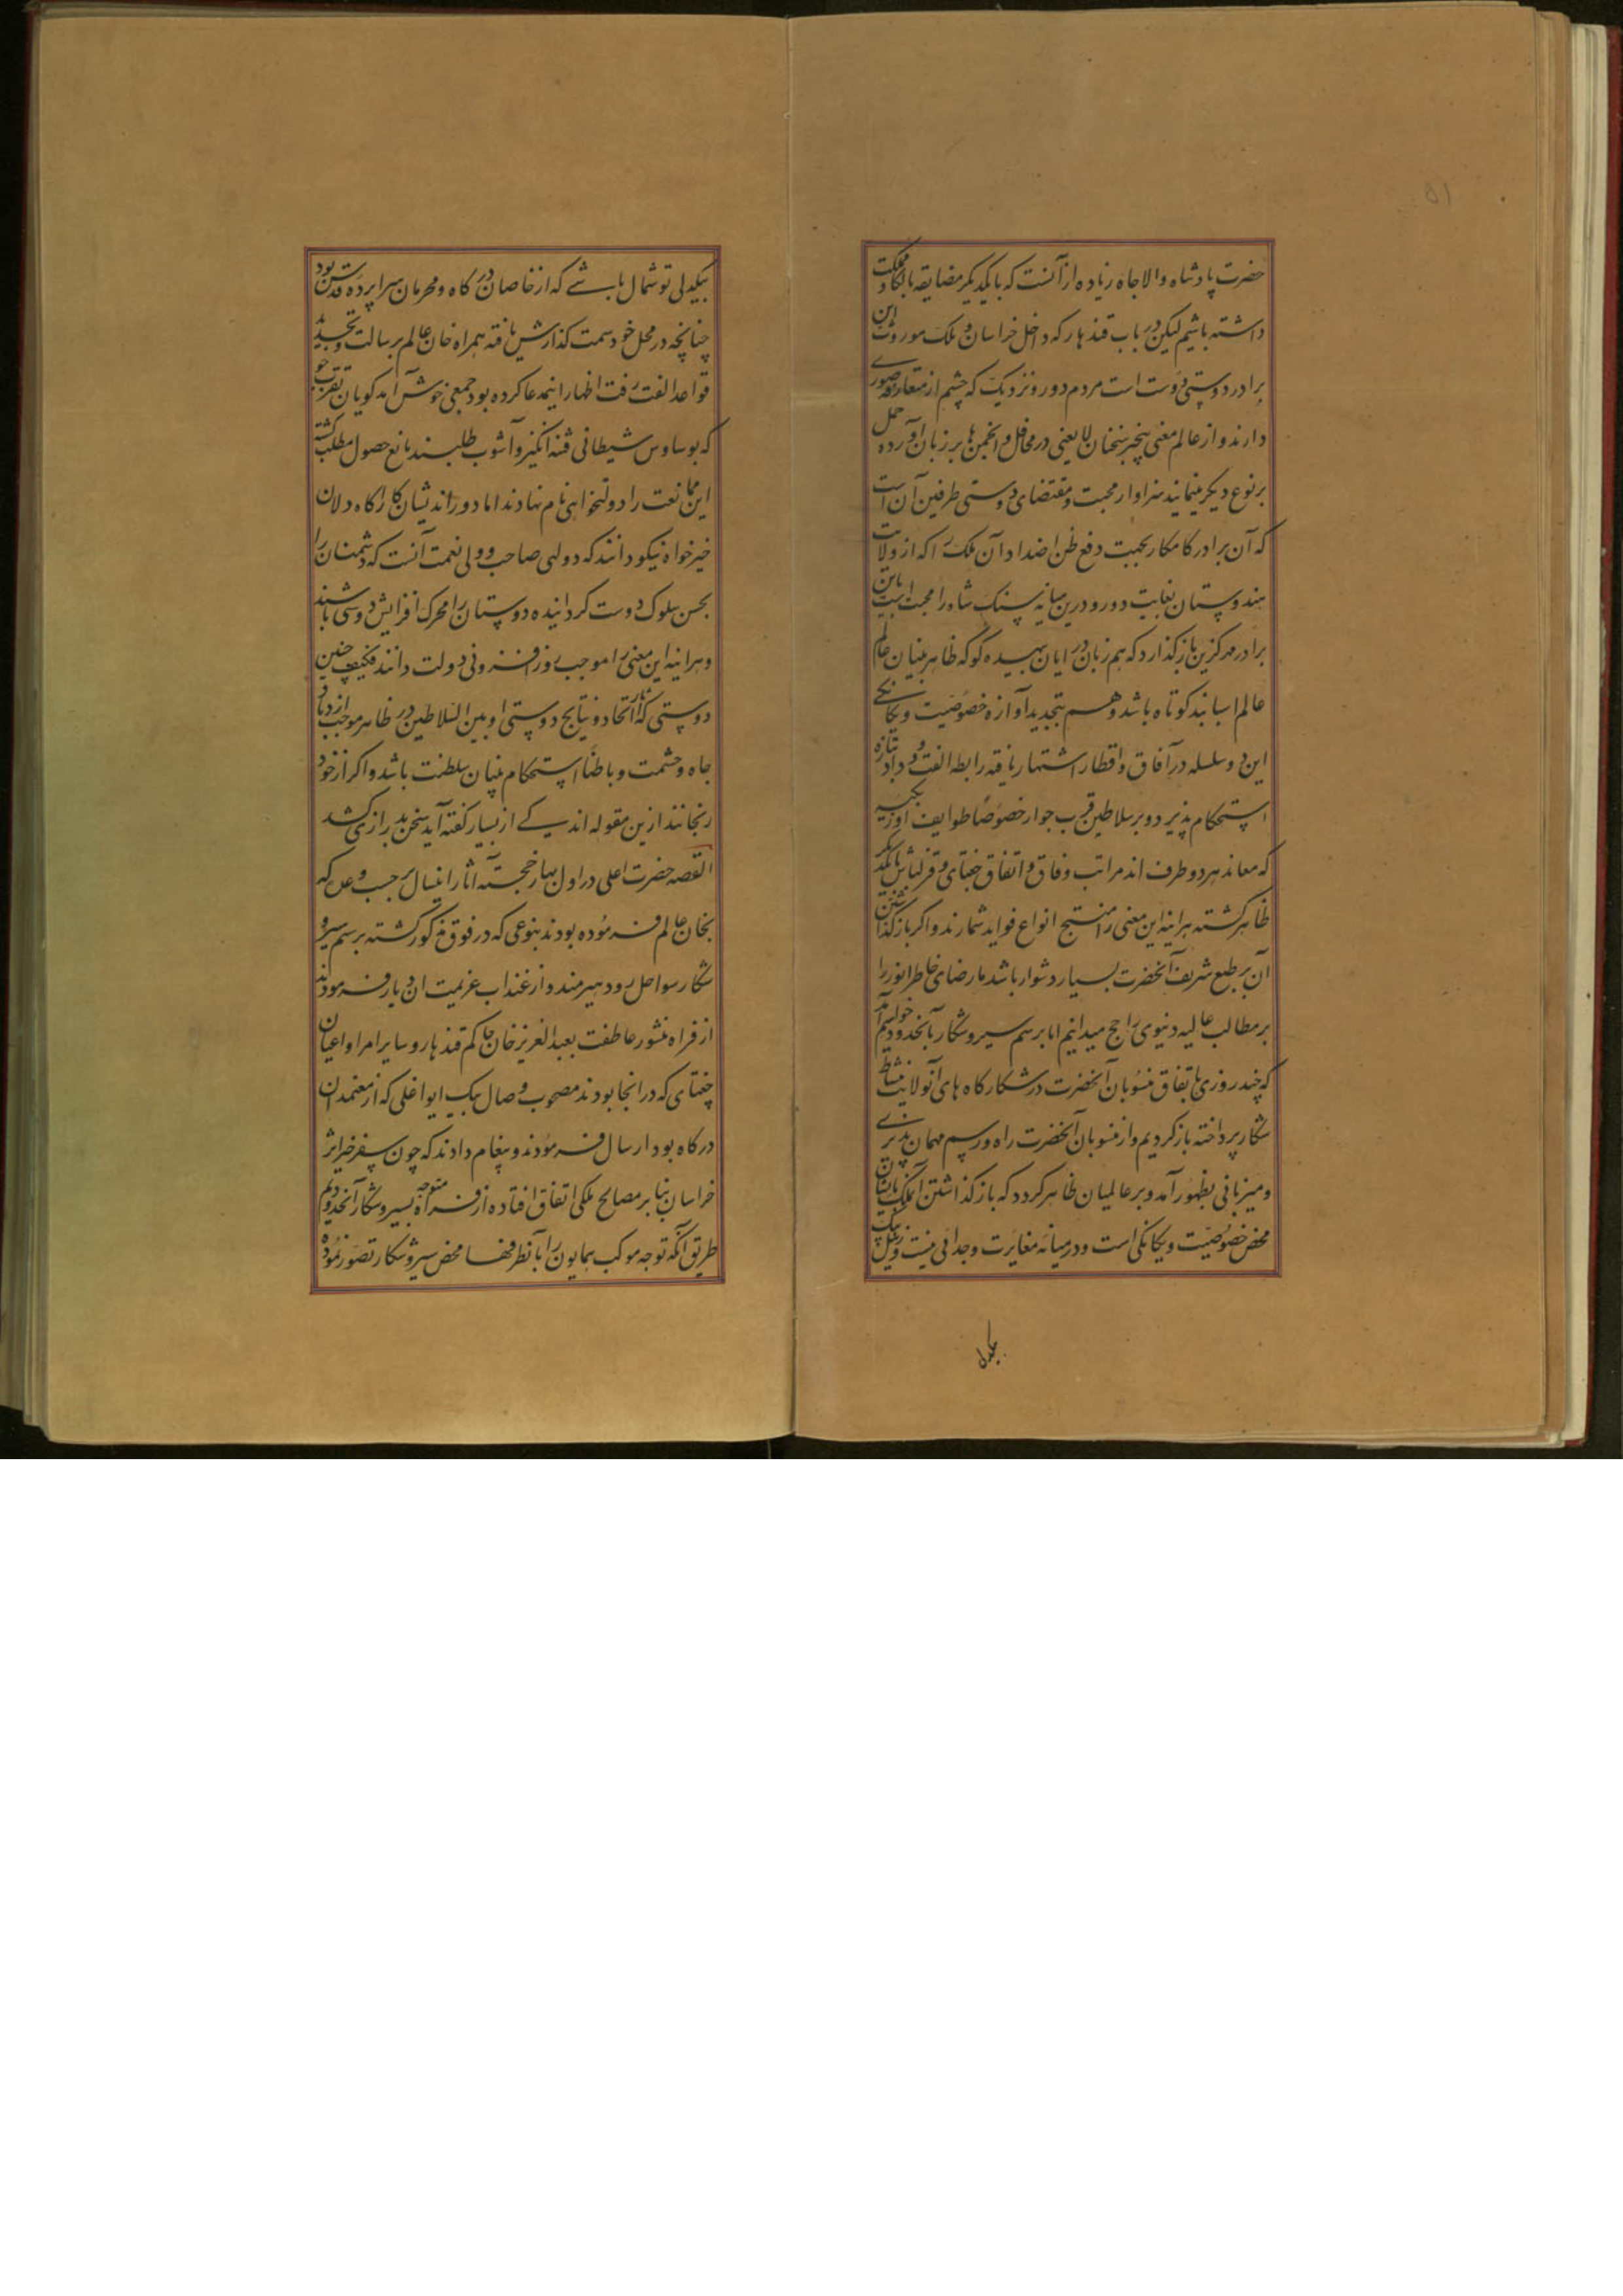 ۵۱
حضرت پادشاه والاجاه زیاده از آنست که با یکدیکر مضایقه بالکا و مملکت
داشته باشیم لیکن در باب قندهار که داخل خراسان و ملک موروث این
برادر دوستی دوست است مردم دور و نزدیک که چشم از متعارفه صوری
دارند و از عالم معنی بیخبر سخنان لایعنی در محافل و انجمن ها بر زبان آورده حمل
بر نوع دیکر مینمایند سزاوار محبت و مقتضای دوستی طرفین آن است
که آن برادر کامکار بجهت دفع ظن اضداد آن ملک را که از ولایت
هندوستان بغایت دور و درین میانه سنک شاه راه محبت است باین
برادر مهرکزین بازکذارد که هم زبان درایان بیهده کو که ظاهربینان عالم
عالم اسبابند کوتاه باشد و هم بتجدید آوازه خصوصیت و یکانکی
این دو سلسله در آفاق و اقطار اشتهار یافته رابطه الفت و وداد بتازه
استحکام پذیرد و بر سلاطین قرب جوار خصوصا طوایف اوزبکیه
که معاند هر دو طرف اند مراتب وفاق و اتفاق جغتای و قزلباش با یکدیکر
ظاهر کشته هراینه این معنی را منتج انواع فواید شمارند و اکر بازکذاشتن
آن بر طبع شریف آنحضرت بسیار دشوار باشد ما رضای خاطر انور را
بر مطالب عالیه دنیوی راجح میدانیم اما برسم سیر و شکار بآنحدود خواهیم آمد
که چند روزی باتفاق منسوبان آنحضرت در شکارکاه های آنولایت بنشاط
شکار پرداخته باز کردیم و از منسوبان آنحضرت راه و رسم مهمان پذیری
و میزبانی بظهور آمده بر عالمیان ظاهر کردد که بازکذاشتن آنملک بایشان
محض خصوصیت و یکانکی است و در میانه مغایرت و جدائی نیست و زینل بیک
بیکدلی
بیکدلی توشمال باشی که از خاصان درکاه و محرمان سراپرده قدس بود
چنانچه در محل خود سمت کذارش یافته همراه خان عالم برسالت و تجدید
قواعد الفت رفت اظهار اینمدعا کرده بود جمعی خوش آمد کویان تقرب جو
که بوساوس شیطانی فتنه انکیز و آشوب طلبند مانع حصول مطلب کشته
این ممانعت را دولتخواهی نام نهادند اما دوراندیشان کارآکاه و دلان
خیرخواه نیکو دانند که دولتی صاحب و ولی نعمت آنست که دشمنان را
بحسن سلوک دوست کردانیده دوستان را محرک افزایش دوستی باشند
و هراینه این معنی را موجب روزافزونی دولت دانند فکیف چنین
دوستی که آثار اتحاد و نتایج دوستی او بین السلاطین در ظاهر موجب ازدیاد
جاه و حشمت و باطنا استحکام بنیان سلطنت باشد و اکر از خود
رنجانند ازین مقوله اندکی از بسیار کفته آید سخن بدرازی کشد
القصه حضرت اعلی در اول بهار خجسته آثار اینسال بر حسب وعده که
بخان عالم فرموده بودند بنوعی که در فوق مذکور کشته برسم سیر و
شکار سواحل رود هیرمند و ارغنداب عزیمت اندیار فرمودند
از فراه منشور عاطفت بعبدالعزیز خان حاکم قندهار و سایر امرا و اعیان
جغتای که در انجا بودند مصحوب وصال بیک ایواغلی که از معتمدان
درکاه بود ارسال فرمودند و پیغام دادند که چون سفر خیراثر
خراسان بنا بر مصالح ملکی اتفاق افتاده از فراه متوجه سیر و شکار آنحدودیم
طریق آنکه توجه موکب همایون را بآنطرفها محض سیر و شکار تصور نموده